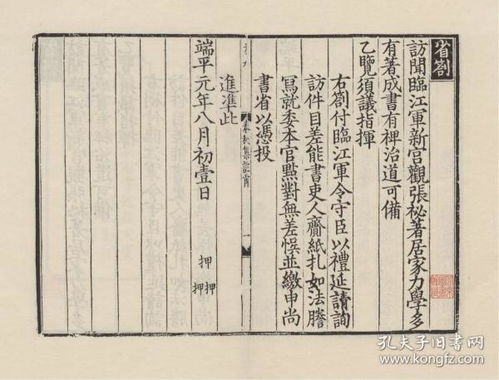 省劄
訪聞臨江軍新宮觀張祕著居家力學多
有著成書有裨治道可備
乙覽須議指揮
右劄付臨江軍令守臣以禮延請詢
訪件目差能書吏人齎紙札如法謄
寫就委本官點對無差悞並繳申尚
書省以憑投
春秋集註省 一
進準此
端平元年八月初壹日
押押
押
孔夫子旧书网
www.kongfz.com